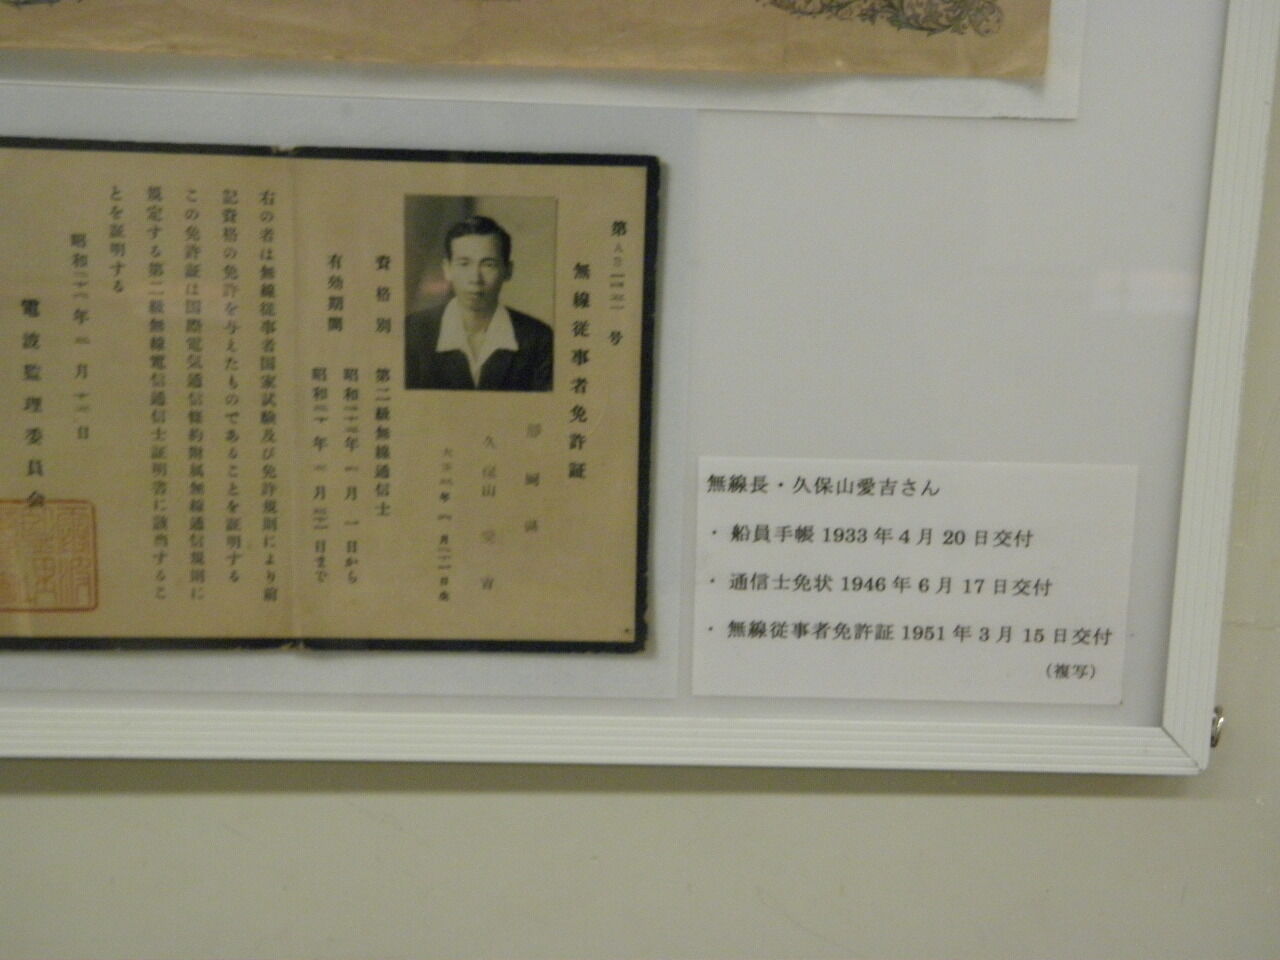 無線従事者免許証
静岡縣
久保山愛吉
資格別 第二級無線通信士
有効期間
右の者は無線従事者国家試験及び免許規則により前
記資格の免許を与えたものであることを証明する
この免許証は国際電気通信條約附属無線通信規則に
規定する第二級無線電信通信士証明書に該当するこ
とを証明する
電波監理委員会
無線長・久保山愛吉さん
・船員手帳 1933 年 4 月 20 日交付
・通信士免状 1946 年 6 月 17 日交付
・無線従事者免許証 1951 年 3 月 15 日交付
（複写）